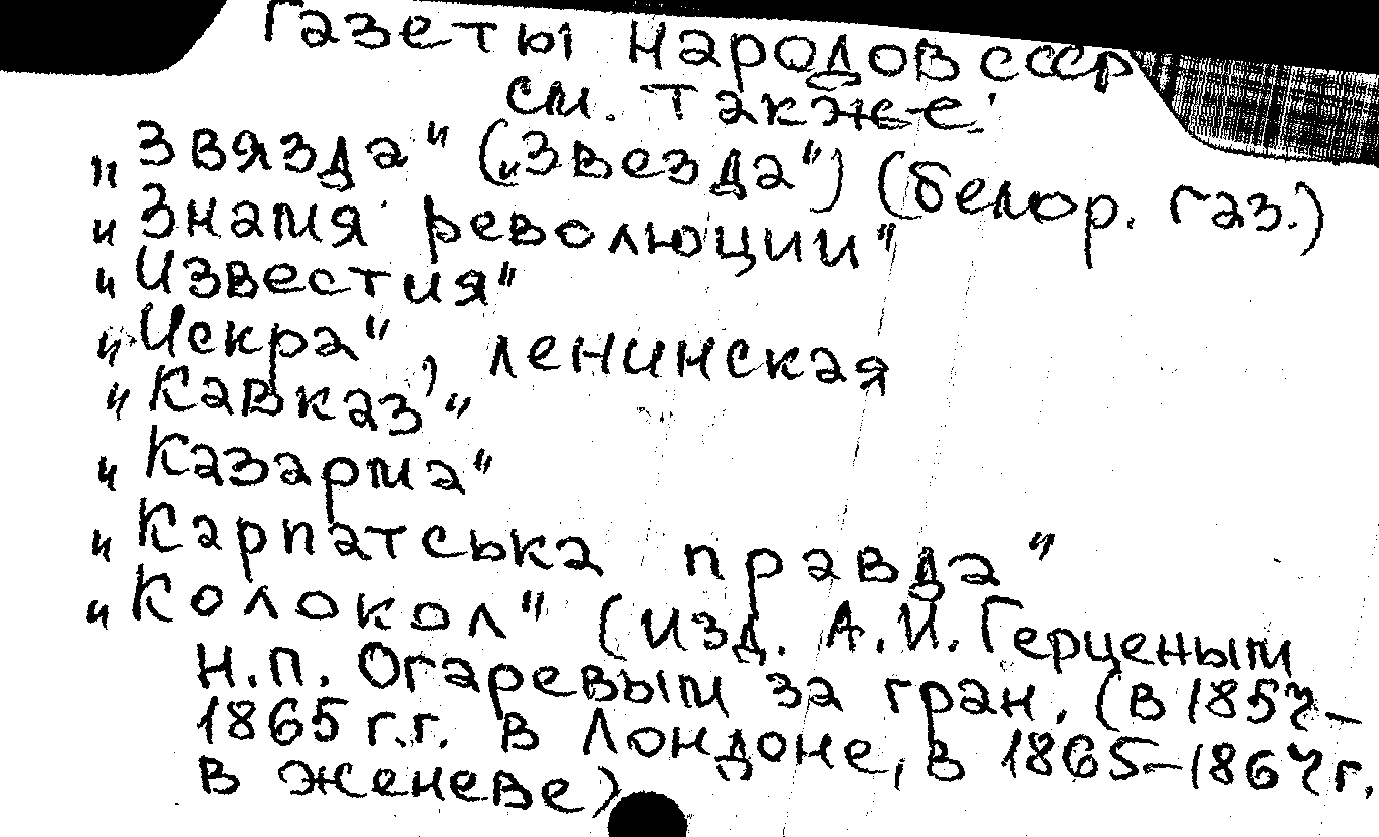 Газеты народов СССР
см. также:
„Звязда" („Звезда") (белор. газ.)
„Знамя революции"
„Известия"
„Искра", ленинская
„Кавказ"
„Казарма"
„Карпатська правда"
„Колокол" (изд. А.И. Герценым
Н.П. Огаревым за гран. (в 1857–
1865 г.г. в Лондоне, в 1865–1867 г.
в Женеве)